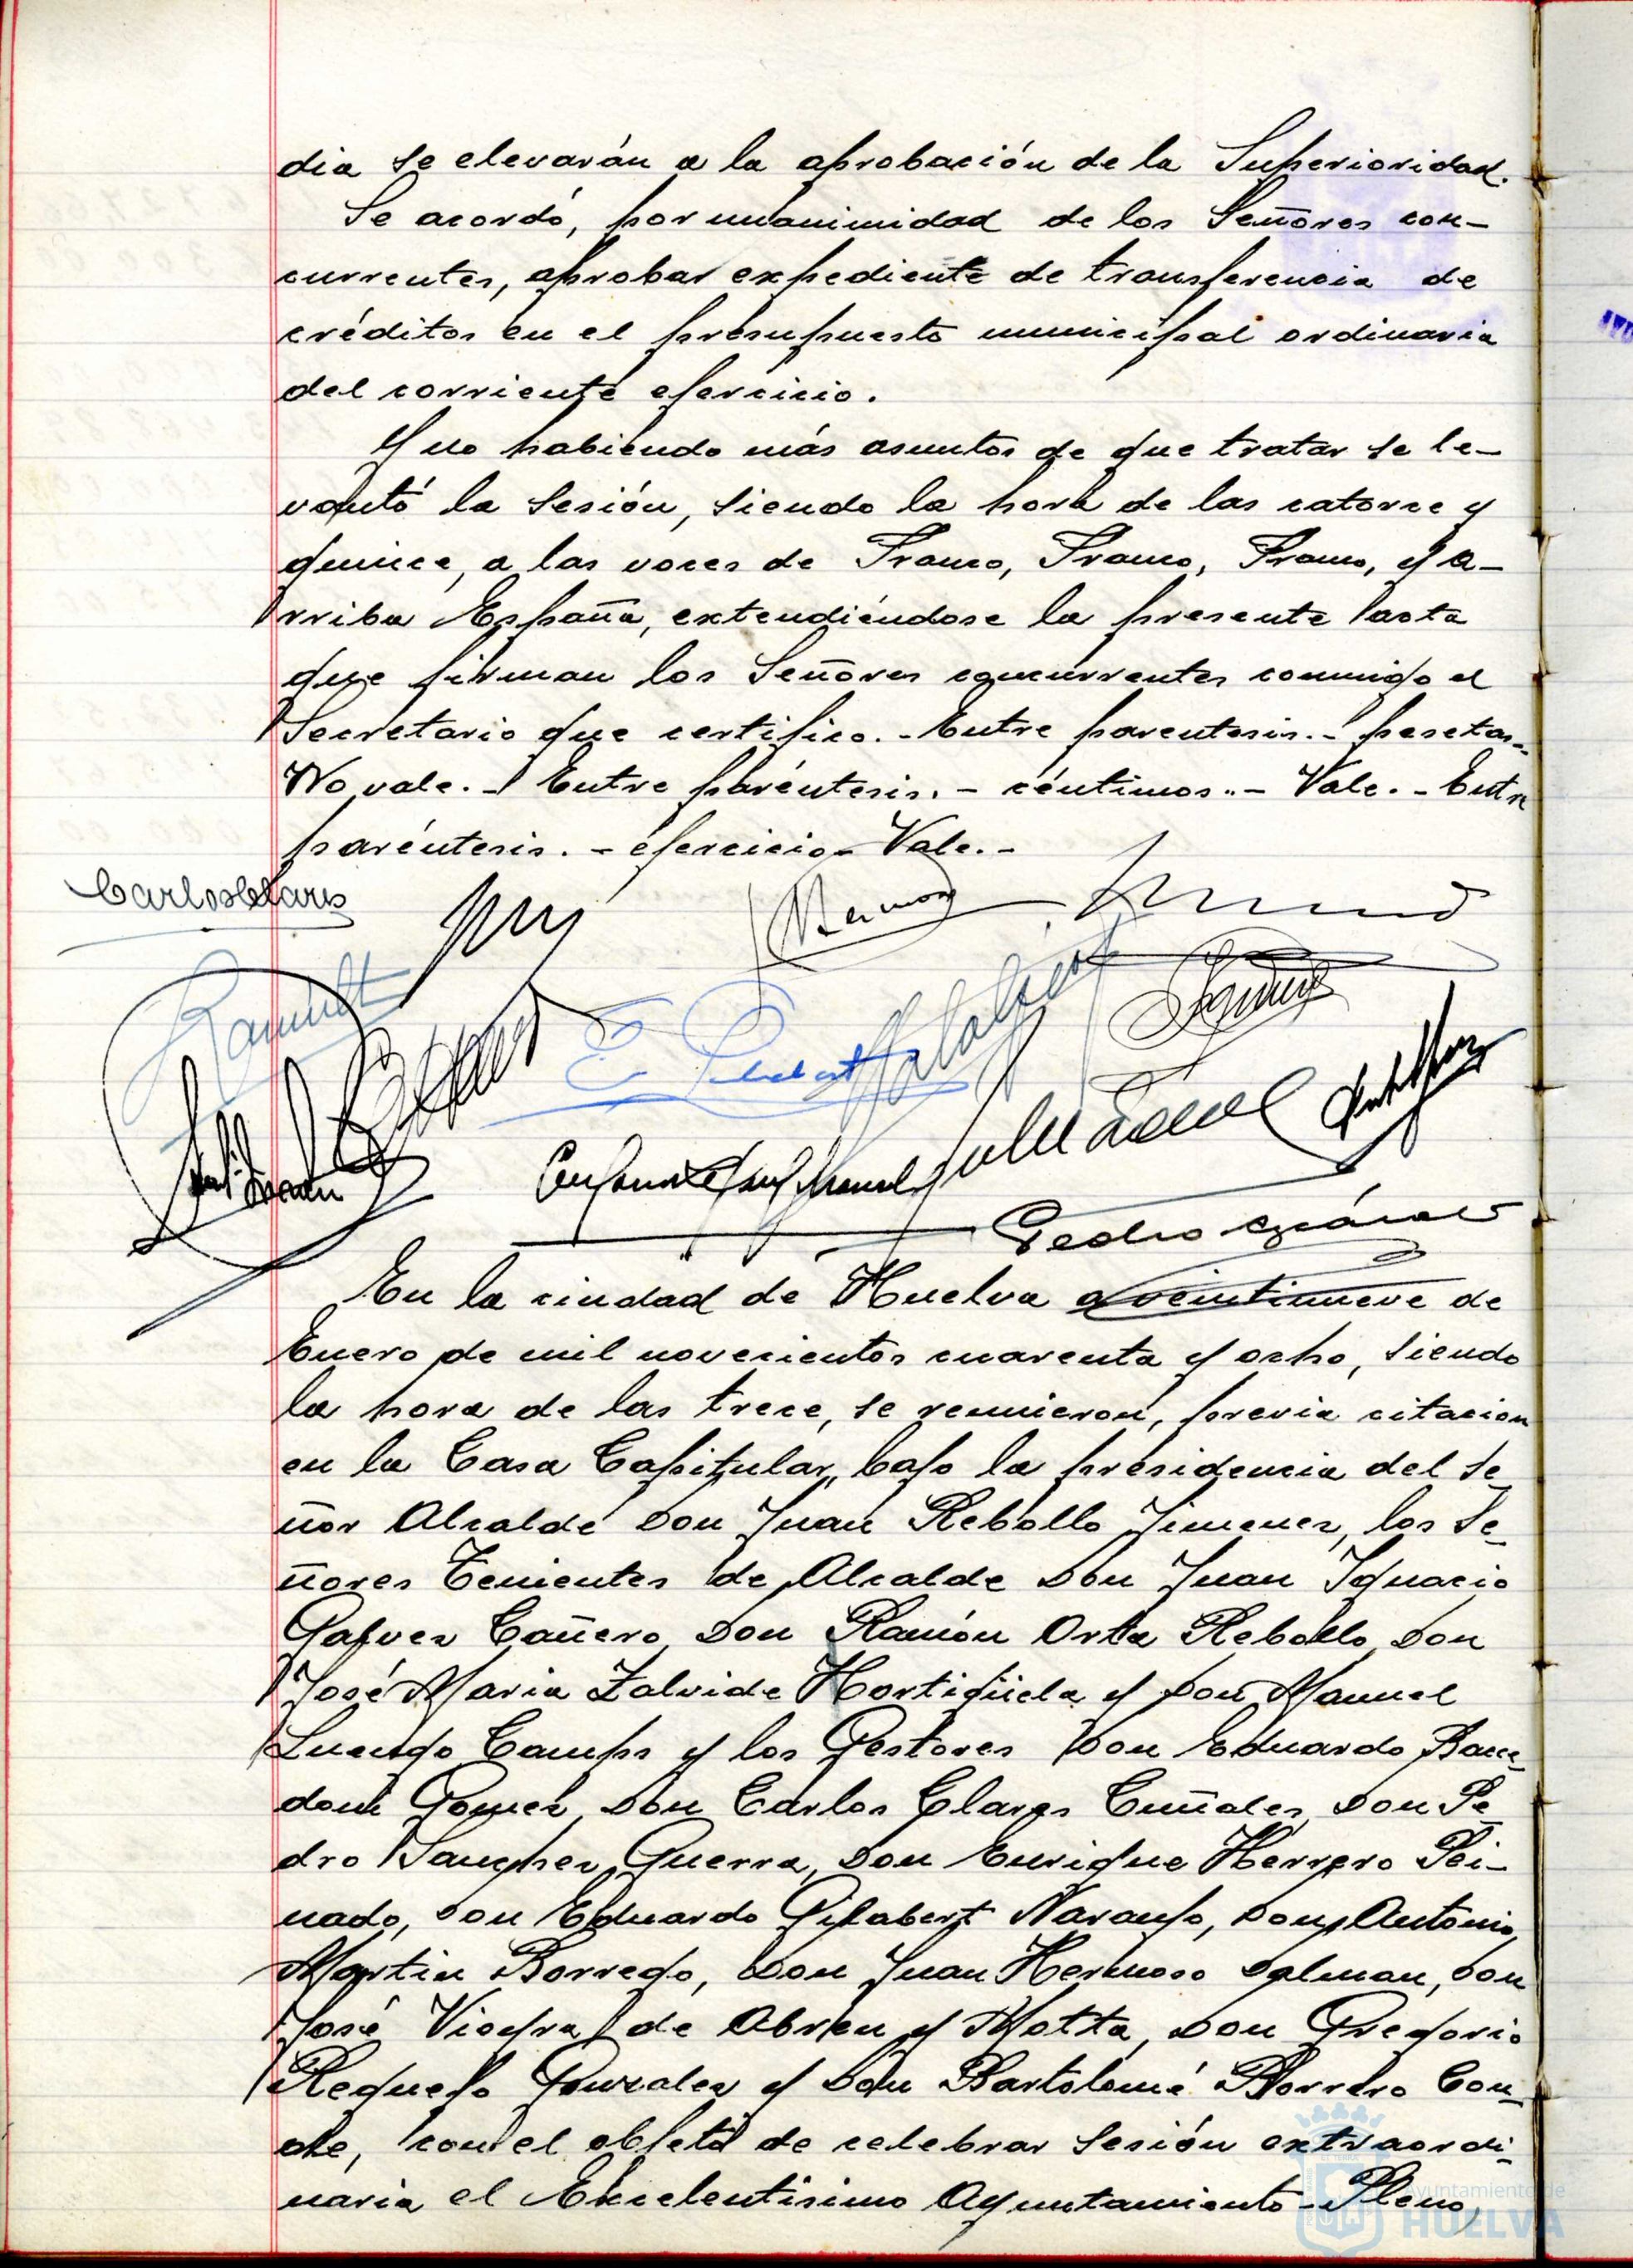 dia se elevarán a la aprobación de la Superioridad.
Se acordó, por unanimidad de los Señores con-
currentes, aprobar expediente de transferencia de
créditos en el presupuesto municipal ordinario
del corriente ejercicio.
Y no habiendo más asuntos de que tratar se le-
vantó la sesión, siendo la hora de las catorce y
quince, a las voces de Franco, Franco, Franco, y A-
rriba España, extendiéndose la presente acta
que firman los Señores concurrentes conmigo el
Secretario que certifico.- Entre parentesis.- pesetas.-
No vale.- Entre paréntesis.- céntimos.- Vale.- Entre
paréntesis.- ejercicio- Vale.-
Carlos Clares
En la ciudad de Huelva a veintinueve de
Enero de mil novecientos cuarenta y ocho, siendo
la hora de las trece, se reunieron, previa citacion
en la Casa Capitular, bajo la presidencia del Se-
ñor Alcalde Don Juan Rebollo Jimenez, los Se-
ñores Tenientes de Alcalde Don Juan Ignacio
Galvez Cañero, Don Ramón Orta Rebollo, Don
José Maria Zalvide Hortigüela y Don Manuel
Luengo Camps y los Gestores Don Eduardo
Gomez, Don Carlos Clares Don Pe-
dro Sanchez Guerra, Don Enrique Herrero Pei-
nado, Don Eduardo Gilabert Naranjo, Don Antonio
Martin Borrego, Don Juan Hermoso Don
José Vieyra de Abreu y Motta, Don Gregorio
Requejo Gonzalez y Don Bartolomé Borrero Con-
de, con el objeto de celebrar sesión extraordi-
naria el Excelentisimo Ayuntamiento-Pleno,
Ayuntamiento de
HUELVA